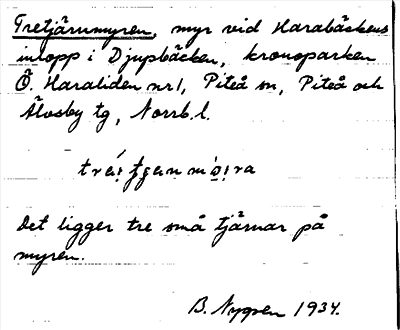 Tretjärnmyren, myr vid Harabäckens
inlopp i Djupbäcken, kronoparken
Ö. Haraliden nr 1, Piteå sn, Piteå och
Älvsby tg, Norrb. l.
Det ligger tre små tjärnar på
myren.
B. Nygren 1934.